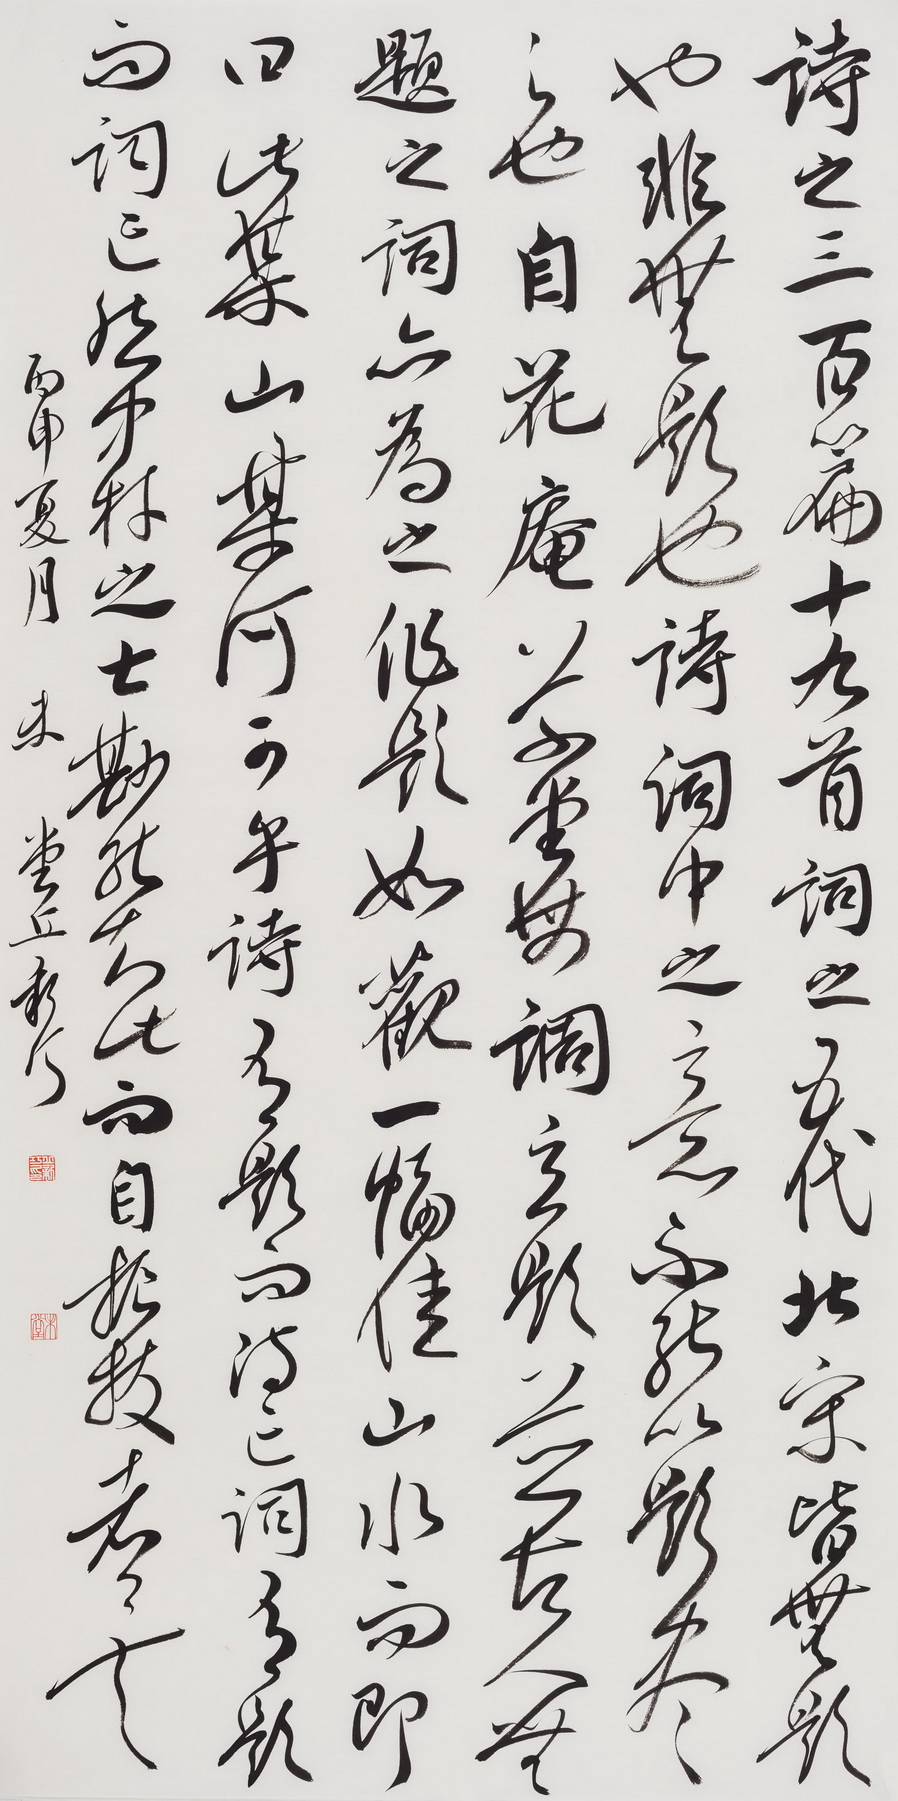 詩之三百篇十九首詞之五代北宋皆無題
也非無題也詩詞中之意不能以題盡
之也自花庵草堂每調立題並古人無
題之詞亦為之作題如觀一幅佳山水而即
曰此某山某河可乎詩有題而詩亡詞有題
而詞亡然中材之士尠能知此而自振拔者矣
丙申夏月 朱